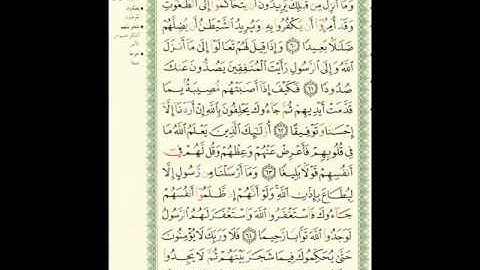 وَمَآ أُنزِلَ مِن قَبۡلِكَ يُرِيدُونَ أَن يَتَحَاكَمُوٓاْ إِلَى ٱلطَّٰغُوتِ
وَقَدۡ أُمِرُوٓاْ أَن يَكۡفُرُواْ بِهِۦۖ وَيُرِيدُ ٱلشَّيۡطَٰنُ أَن يُضِلَّهُمۡ
ضَلَٰلَۢا بَعِيدٗا ٦٠ وَإِذَا قِيلَ لَهُمۡ تَعَالَوۡاْ إِلَىٰ مَآ أَنزَلَ
ٱللَّهُ وَإِلَى ٱلرَّسُولِ رَأَيۡتَ ٱلۡمُنَٰفِقِينَ يَصُدُّونَ عَنكَ
صُدُودٗا ٦١ فَكَيۡفَ إِذَآ أَصَٰبَتۡهُم مُّصِيبَةُۢ بِمَا
قَدَّمَتۡ أَيۡدِيهِمۡ ثُمَّ جَآءُوكَ يَحۡلِفُونَ بِٱللَّهِ إِنۡ أَرَدۡنَآ إِلَّآ
إِحۡسَٰنٗا وَتَوۡفِيقًا ٦٢ أُوْلَٰٓئِكَ ٱلَّذِينَ يَعۡلَمُ ٱللَّهُ مَا
فِي قُلُوبِهِمۡ فَأَعۡرِضۡ عَنۡهُمۡ وَعِظۡهُمۡ وَقُل لَّهُمۡ فِيٓ
أَنفُسِهِمۡ قَوۡلَۢا بَلِيغٗا ٦٣ وَمَآ أَرۡسَلۡنَا مِن رَّسُولٍ إِلَّا
لِيُطَاعَ بِإِذۡنِ ٱللَّهِۚ وَلَوۡ أَنَّهُمۡ إِذ ظَّلَمُوٓاْ أَنفُسَهُمۡ
جَآءُوكَ فَٱسۡتَغۡفَرُواْ ٱللَّهَ وَٱسۡتَغۡفَرَ لَهُمُ ٱلرَّسُولُ
لَوَجَدُواْ ٱللَّهَ تَوَّابٗا رَّحِيمٗا ٦٤ فَلَا وَرَبِّكَ لَا يُؤۡمِنُونَ
حَتَّىٰ يُحَكِّمُوكَ فِيمَا شَجَرَ بَيۡنَهُمۡ ثُمَّ لَا يَجِدُواْ